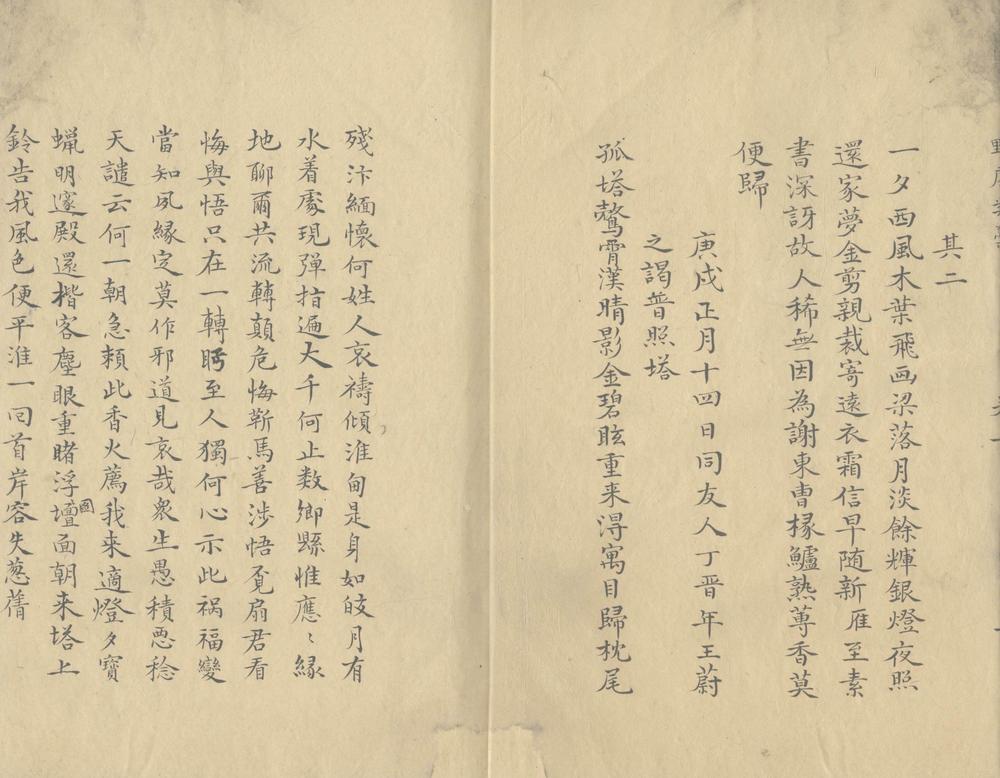 其二
一夕西風木葉飛画梁落月淡餘輝銀燈夜照
還家夢金剪親裁寄遠衣霜信早随新雁至素
書深訝故人稀無因為謝東曹掾鱸熟蓴香莫
便歸
庚戌正月十四日同友人丁晋年王蔚
之謁普照塔
孤塔鷔霄漢晴影金碧眩重来淂寓目歸枕尾
殘汴緬懷何姓人哀禱傾淮甸是身如皎月有
水着處現弹指遍大千何止数鄉縣惟應〻緣
地聊爾共流轉顛危悔靳馬善涉悟覔扇君看
悔與悟只在一轉眄至人獨何心示此祸福變
當知夙緣定莫作邪道見哀哉衆生愚積悪稔
天譴云何一朝急頼此香火薦我来適燈夕寶
蝋明邃殿還揩客塵眼重睹浮壇圖面朝来塔上
鈴告我風色便平淮一回首岸容失葱蒨